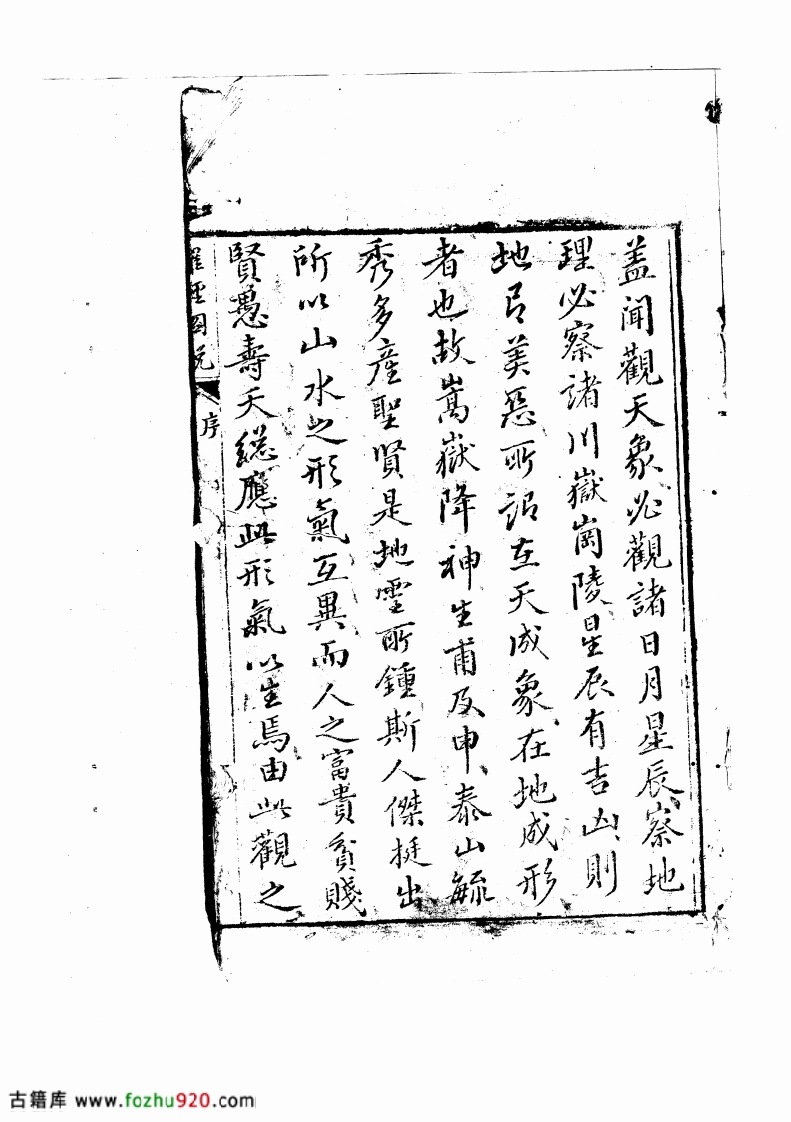 蓋聞觀天象必觀諸日月星辰察地
理必察諸川嶽崗陵星辰有吉凶則
地有美惡所謂在天成象在地成形
者也故嵩嶽降神生甫及申泰山毓
秀多產聖賢是地靈所鍾斯人傑挺出
所以山水之形氣互異而人之富貴貧賤
賢愚壽夭總應此形氣以生焉由此觀之
羅經圖說
序
古籍库 www.fozhu920.com